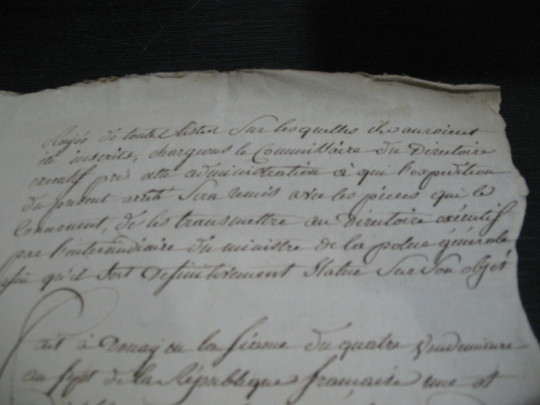 Rayés de toutes listes sur lesquelles ils auroient
été inscrits, chargeons le Commissaire du Directoire
executif près cette administration à qui l'expedition
du present arrêté sera remis avec les pièces qui le
Concernent, de les transmettre au Directoire exécutif
par l'intermédiaire du ministre de la police générale
afin qu'il soit definitivement Statué Sur Son objet
fait à Douay en la séance du quatre Vendemiaire
an Sept de la République française une et